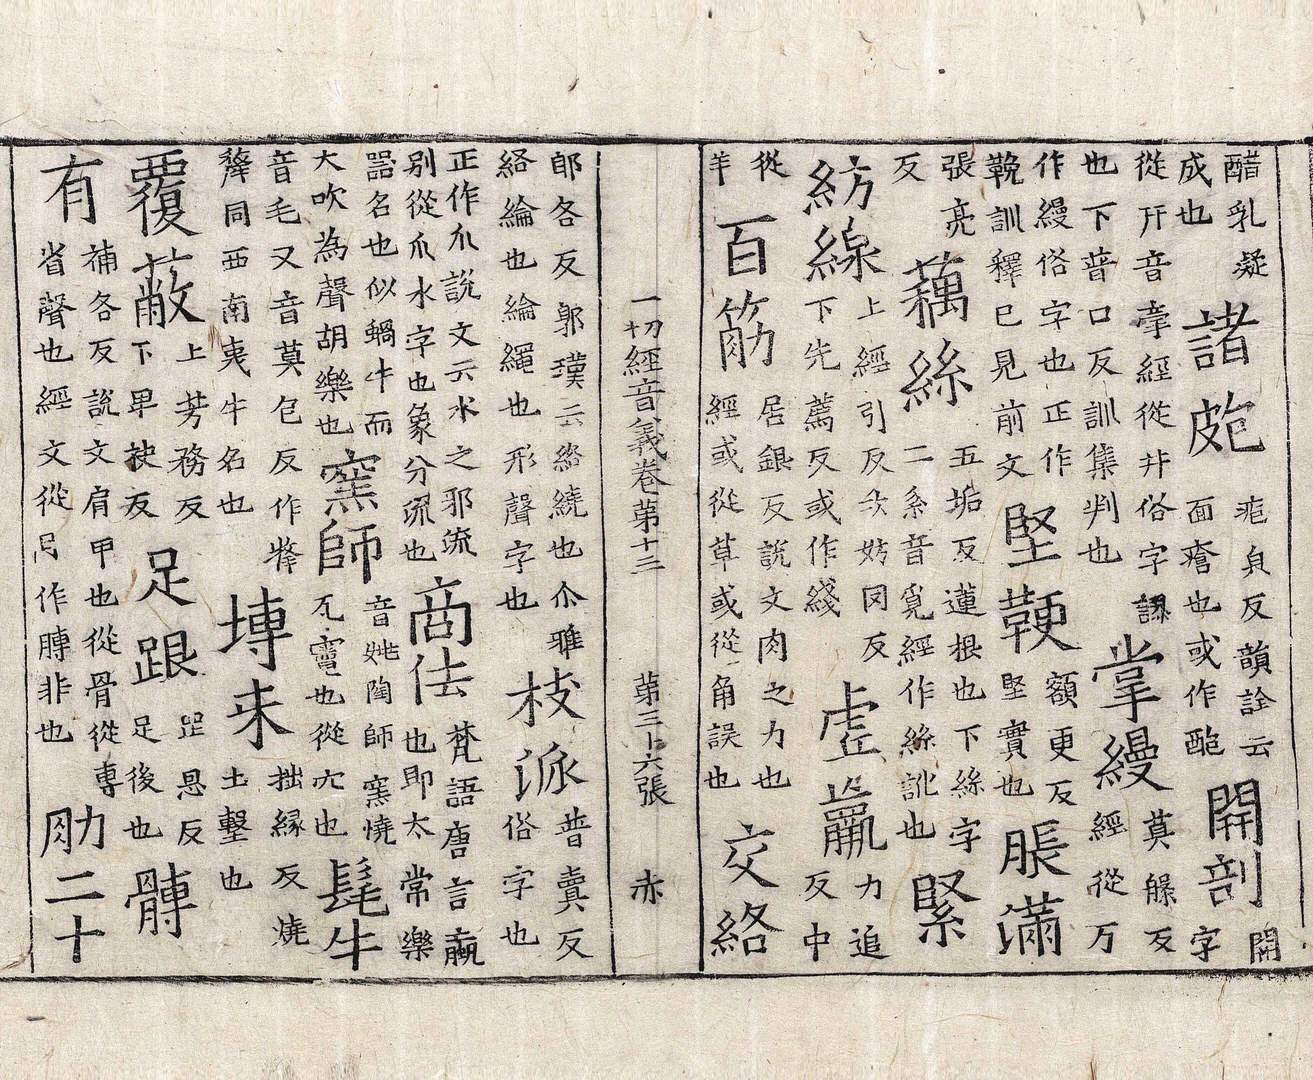 醋乳凝成也諸皰疱皃反韻詮云面瘡也或作皰開剖開字
從幵音牽經從井俗字誤也下普口反訓集判也掌縵莫躶反經從万
作縵俗字也正作鞔訓釋已見前文堅鞕額更反堅實也脹滿
張亮反藕絲五垢反蓮根也下絲字二糸音覓經作絲訛也緊
紡線上經引反次妨罔反下先薦反或作綫虛羸力追反中
從羊百筋居銀反說文肉之力也經或從草或從角誤也交絡
一切經音義卷第十三 第三十六張 赤
郎各反郭璞云絡繞也尒雅絡綸也綸繩也形聲字也枝派普賣反俗字也
正作𠂢說文云水之邪流别從𠂢水字也象分流也商佉梵語唐言蠃也即太常樂
器名也似蝸牛而大吹為聲胡樂也窯師音姚陶師窯燒瓦竈也從穴也髦牛
音毛又音莫包反作犛犛同西南夷牛名也塼来拙縁反燒土墼也
覆蔽上芳務反下卑袂反足跟恩反足後也髆
有補各反說文肩甲也從骨從專省聲也經文從月作膊非也肋二十